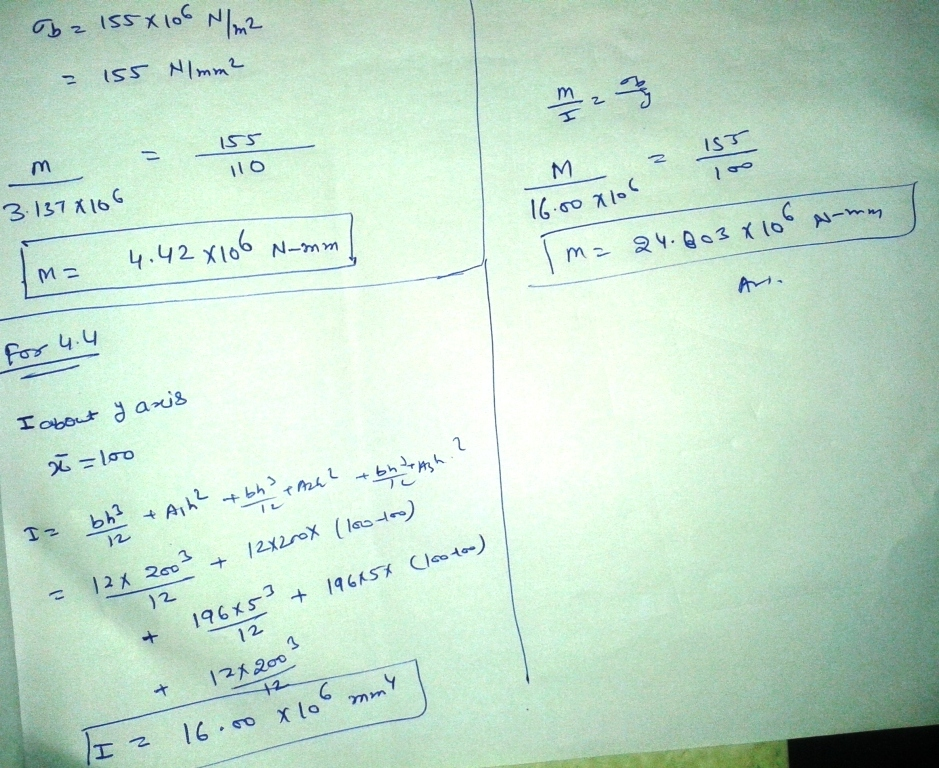 σb = 155 × 10⁶ N/m²
= 155 N/mm²
M / 3.137 × 10⁶ = 155 / 110
M = 4.42 × 10⁶ N-mm
For 4.4
I about y axis
x̄ = 100
I = bh³/12 + A₁h² + bh³/12 + A₂h² + bh³/12 + A₃h²
= 12 × 200³/12 + 12×200× (100-100)
+ 196×5³/12 + 196×5× (100-100)
+ 12×200³/12
I = 16.00 × 10⁶ mm⁴
M/I = σb/y
M / 16.00 × 10⁶ = 155 / 100
M = 24.803 × 10⁶ N-mm
Ans.